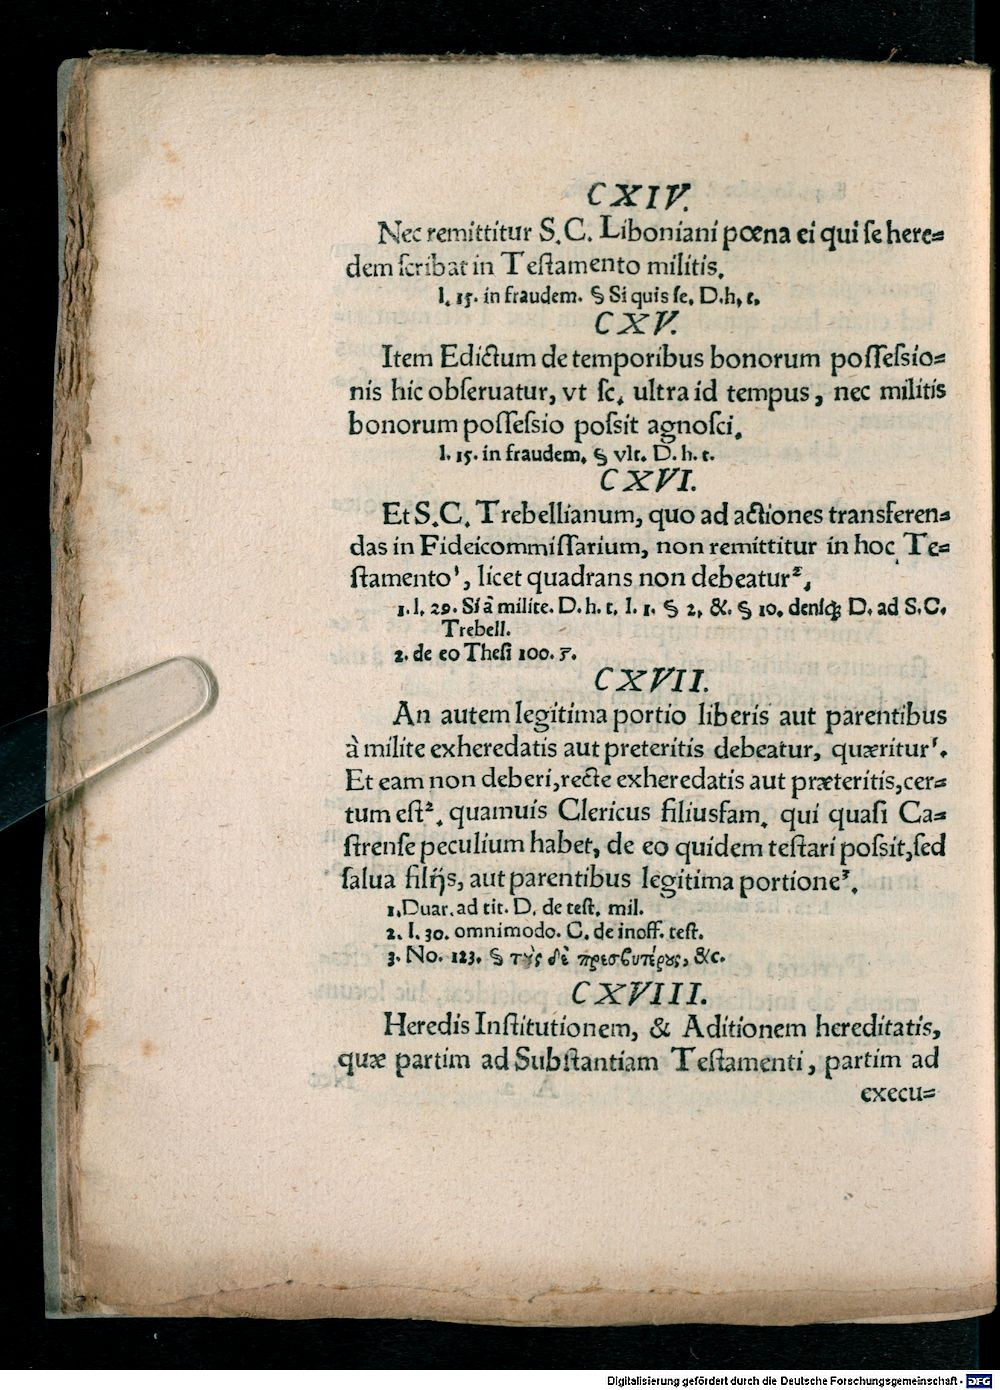 CXIV.
Nec remittitur S.C. Liboniani pœna ei qui ſe here=
dem ſcribat in Teſtamento militis.
l. 15. in fraudem. § Si quis ſe. D. h. t.
CXV.
Item Edictum de temporibus bonorum poſſeſsio=
nis hic obſeruatur, vt ſc. ultra id tempus, nec militis
bonorum poſſeſsio poſsit agnoſci.
l. 15. in fraudem. § vlt. D. h. t.
CXVI.
Et S.C. Trebellianum, quo ad actiones transferen=
das in Fideicommiſſarium, non remittitur in hoc Te=
ſtamento¹, licet quadrans non debeatur².
1. l. 29. Si à milite. D. h. t. l. 1. § 2. &. § 10. deniq́; D. ad S.C.
Trebell.
2. de eo Theſi 100. 7.
CXVII.
An autem legitima portio liberis aut parentibus
à milite exheredatis aut preteritis debeatur, quæritur¹.
Et eam non deberi, recte exheredatis aut præteritis, cer=
tum eſt². quamuis Clericus filiusfam. qui quaſi Ca=
ſtrenſe peculium habet, de eo quidem teſtari poſsit, ſed
ſalua filijs, aut parentibus legitima portione³.
1. Duar. ad tit. D. de teſt. mil.
2. l. 30. omnimodo. C. de inoff. teſt.
3. No. 123. § τοὺς δὲ πρεσβυτέρους, &c.
CXVIII.
Heredis Inſtitutionem, & Aditionem hereditatis,
quæ partim ad Subſtantiam Teſtamenti, partim ad
execu=
Digitalisierung gefördert durch die Deutsche Forschungsgemeinschaft - DFG